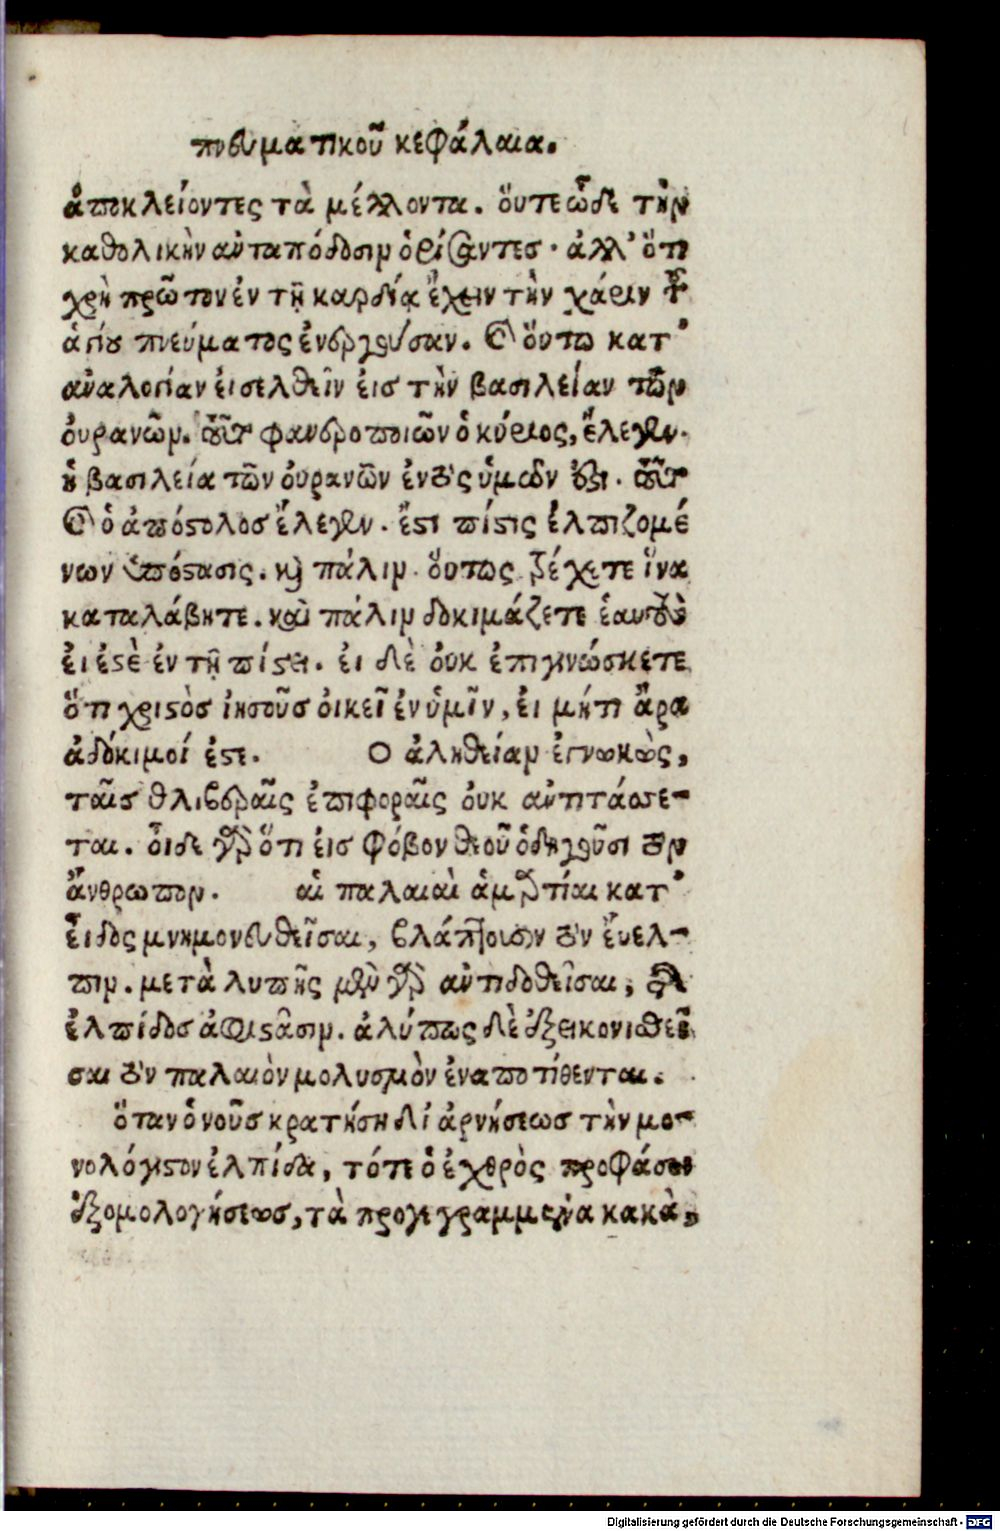 πνευματικοῦ κεφάλαια.
ἀποκλείοντες τὰ μέλλοντα. οὔτε ὧδε τὴν
καθολικὴν ἀνταπόδοσιν ὁρίσαντεσ· ἀλλ’ ὅτι
χρὴ πρῶτον ἐν τῇ καρδίᾳ ἔχειν τὴν χάριν τοῦ
ἁγίου πνεύματος ἐνεργοῦσαν. καὶ οὕτω κατ’
ἀναλογίαν ἐισελθεῖν ἐισ τὴν βασιλείαν τῶν
ὀυρανῶν. τοῦτο φανεροποιῶν ὁ κύριος, ἔλεγεν·
ἡ βασιλεία τῶν ὀυρανῶν ἐντὸς ὑμῶν ἐστι. τοῦτο
καὶ ὁ ἀπόστολοσ ἔλεγεν. ἔστι πίστις ἐλπιζομέ
νων ὑπόστασις. καὶ πάλιν. ὅυτως τρέχετε ἵνα
καταλάβητε. καὶ πάλιν δοκιμάζετε ἑαυτοὺς
ἐι ἐστὲ ἐν τῇ πίστει. ἐι δὲ ὀυκ ἐπιγινώσκετε
ὅτι χριστὸσ ἰησοῦσ ὀικεῖ ἐν ὑμῖν, ἐι μήτι ἄρα
ἀδόκιμοί ἐστε. Ο ἀληθείαν ἐγνωκὼς,
ταῖσ θλιβεραῖς ἐπιφοραῖς ὀυκ ἀντιτάσσε-
ται. ὆ιδε γὰρ ὅτι ἐισ φόβον θεοῦ ὁδηγοῦσι τὸν
ἄνθρωπον. αἱ παλαιαὶ ἁμαρτίαι κατ’
ἐῖδος μνημονευθεῖσαι, βλάπτουσιν τὸν ἔυελ-
πιν. μετὰ λυπῆς μὲν γὰρ ἀντιδοθεῖσαι, τῆς
ἐλπίδοσ ἀφιστᾶσιν. ἀλύπως δὲ ἐξεικονισθεῖ
σαι τὸν παλαιὸν μολυσμὸν ἐναποτίθενται.
ὅταν ὁ νοῦσ κρατήσῃ δἰ ἀρνήσεωσ τὴν μο-
νολόγιστον ἐλπίδα, τότε ὁ ἐχθρὸς προφάσει
ἐξομολογήσεωσ, τὰ προγεγραμμένα κακὰ,
Digitalisierung gefördert durch die Deutsche Forschungsgemeinschaft - DFG